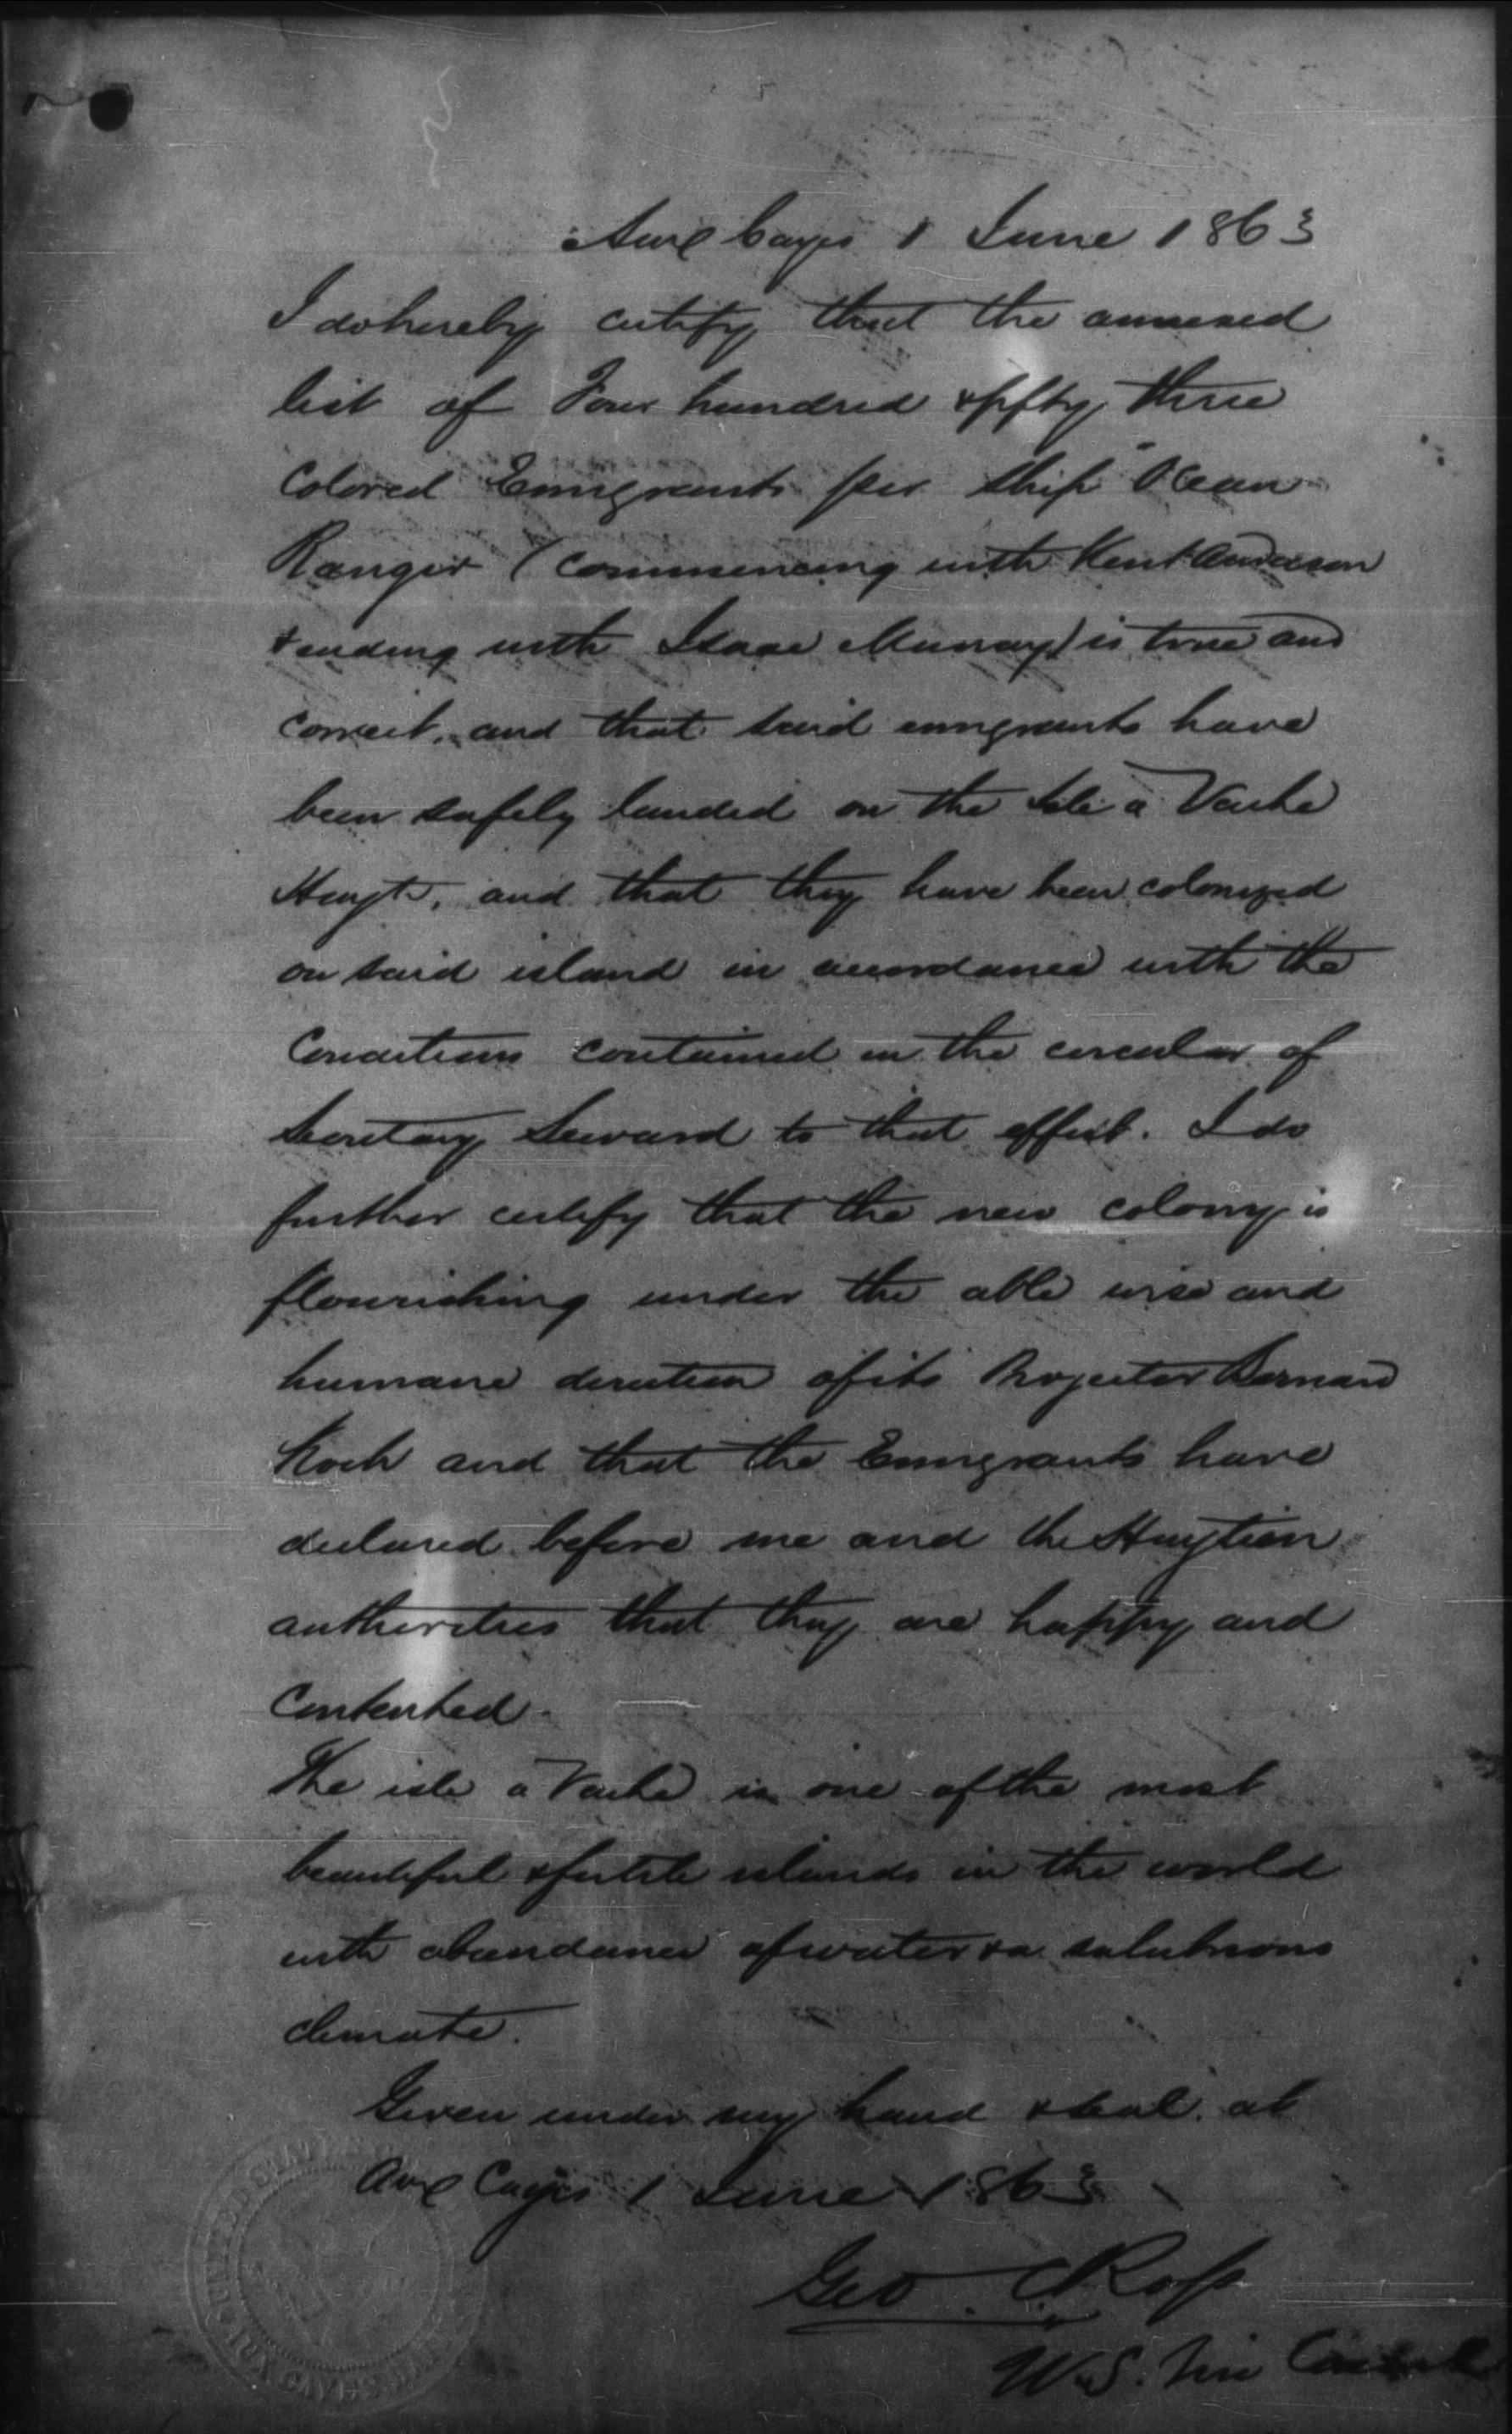 Aux Cayes 1 June 1863
I do hereby certify that the annexed
list of Four hundred & fifty three
Colored Emigrants per Ship Ocean
Ranger (Commencing with Kent Anderson
& ending with Isaac Murray) is true and
correct, and that said emigrants have
been safely landed on the Isle a Vache
Hayti, and that they have been colonized
on said island in accordance with the
Conditions contained in the circular of
Secretary Seward to that effect. I do
further certify that the new colony is
flourishing under the able wise and
humane direction of its Projector Bernard
Kock and that the Emigrants have
declared before me and the Haytien
authorities that they are happy and
Contented.
The isle a Vache is one of the most
beautiful & fertile islands in the world
with abundance of water & a salubrious
climate.
Given under my hand & seal at
Aux Cayes 1 June 1863
Geo Ross
U.S. Vice Consul
UNITED STATES
AUX CAYES HAYTI